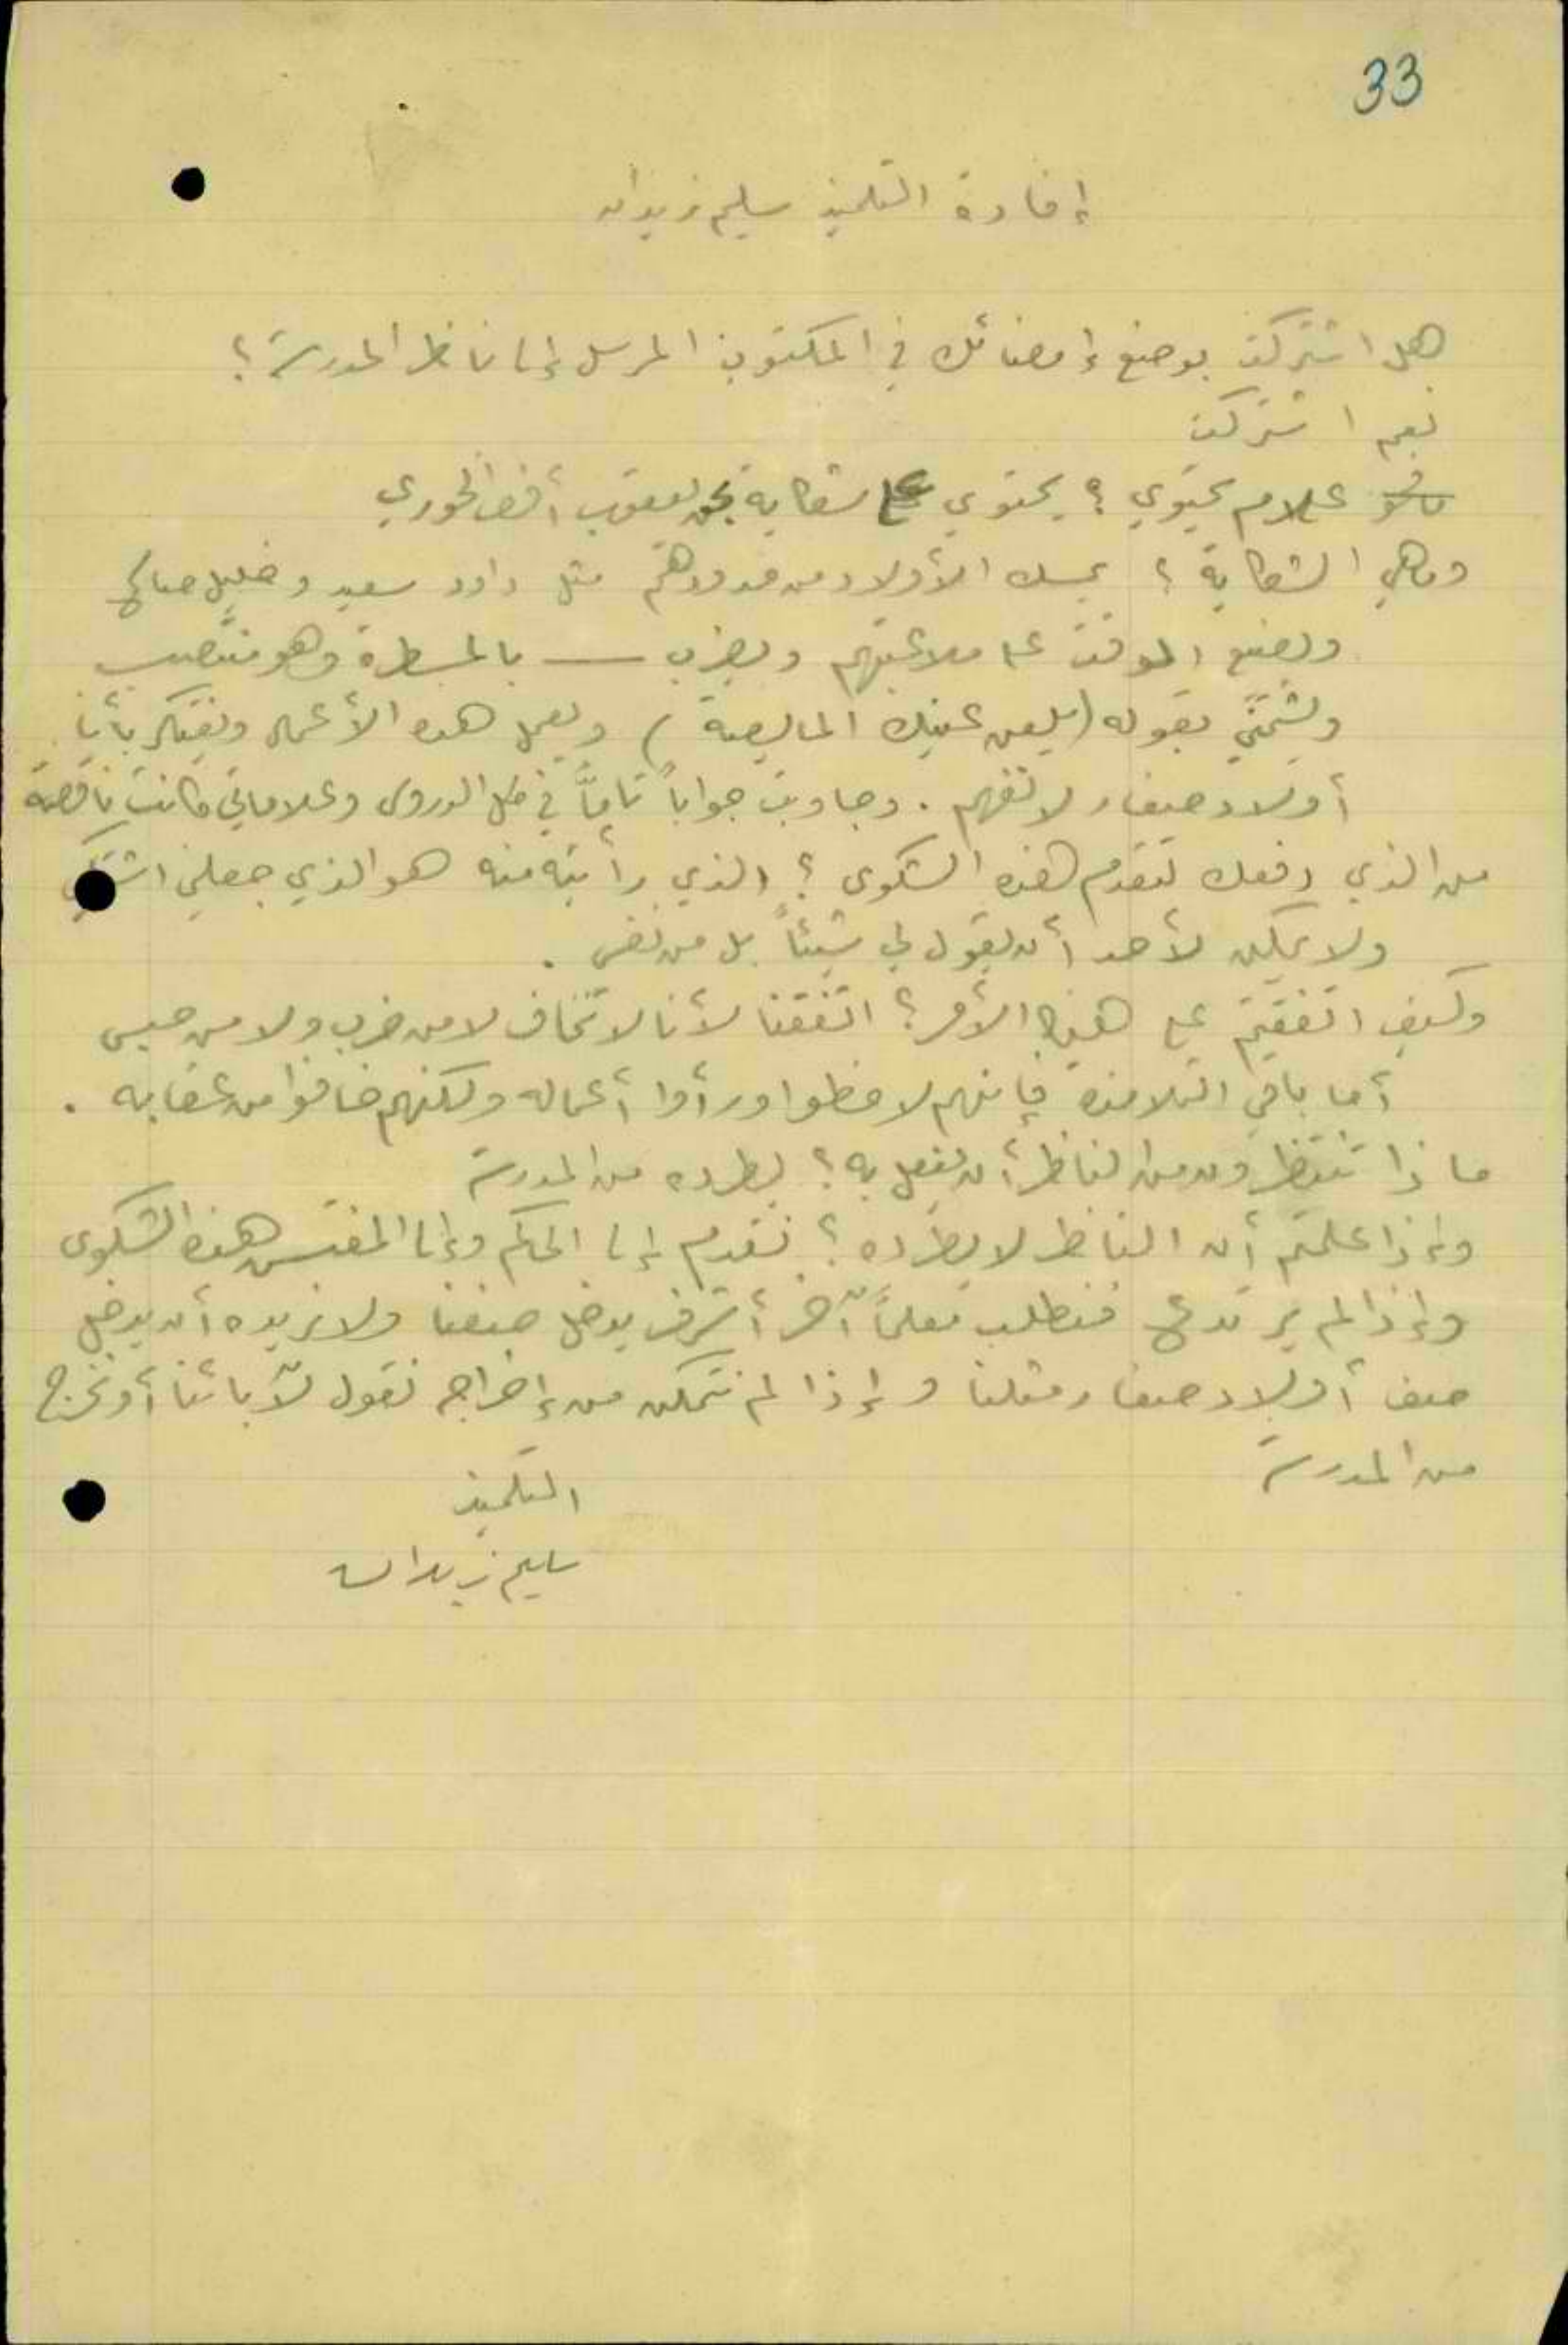 33
إفادة التلميذ سليم زيدان
هل اشتركت بوضع إمضائك في المكتوب المرسل إلى ناظر المدرسة؟
نعم اشتركت
علام يحتوي؟ يحتوي على شكاية بحق يعقوب أفندي الخوري
وما هي الشكاية؟ يمسك الأولاد من خدودهم مثل داود سعيد و خليل صالح
ويضيع الوقت على ملاعبتهم ويضرب — بالمسطرة وهو منتصب
ويشتمني بقوله (يلعن عينك المايصة) ويعمل هذه الأعمال ويفتكر بأننا
أولاد صغار لا نفهم. وجاوبت جواباً تاماً في كل الدروس وعلاماتي كانت ناقصة
من الذي دفعك لتقدم هذه الشكوى؟ الذي رأيته منه هو الذي جعلني اشتكي
ولا يمكن لأحد أن يقول لي شيئاً بل من نفسي.
وكيف اتفقتم على هذا الأمر؟ اتفقنا لأننا لا نخاف لا من ضرب ولا من حبس
أما باقي التلامذة فإنهم لاحظوا ورأوا أعماله ولكنهم خافوا من عقابه.
ماذا تنتظرون من الناظر أن يفعل به؟ يطرده من المدرسة
وإذا علمتم أن الناظر لا يطرده؟ نقدم إلى الحاكم وإلى المفتش هذه الشكوى
وإذا لم يرتدع فنطلب معلماً آخر أشرف يدخل صفنا ولا نريده أن يدخل
صف أولاد صغار مثلنا وإذا لم نتمكن من إخراجه نقول لآبائنا أو نخرج
من المدرسة
التلميذ
سليم زيدان